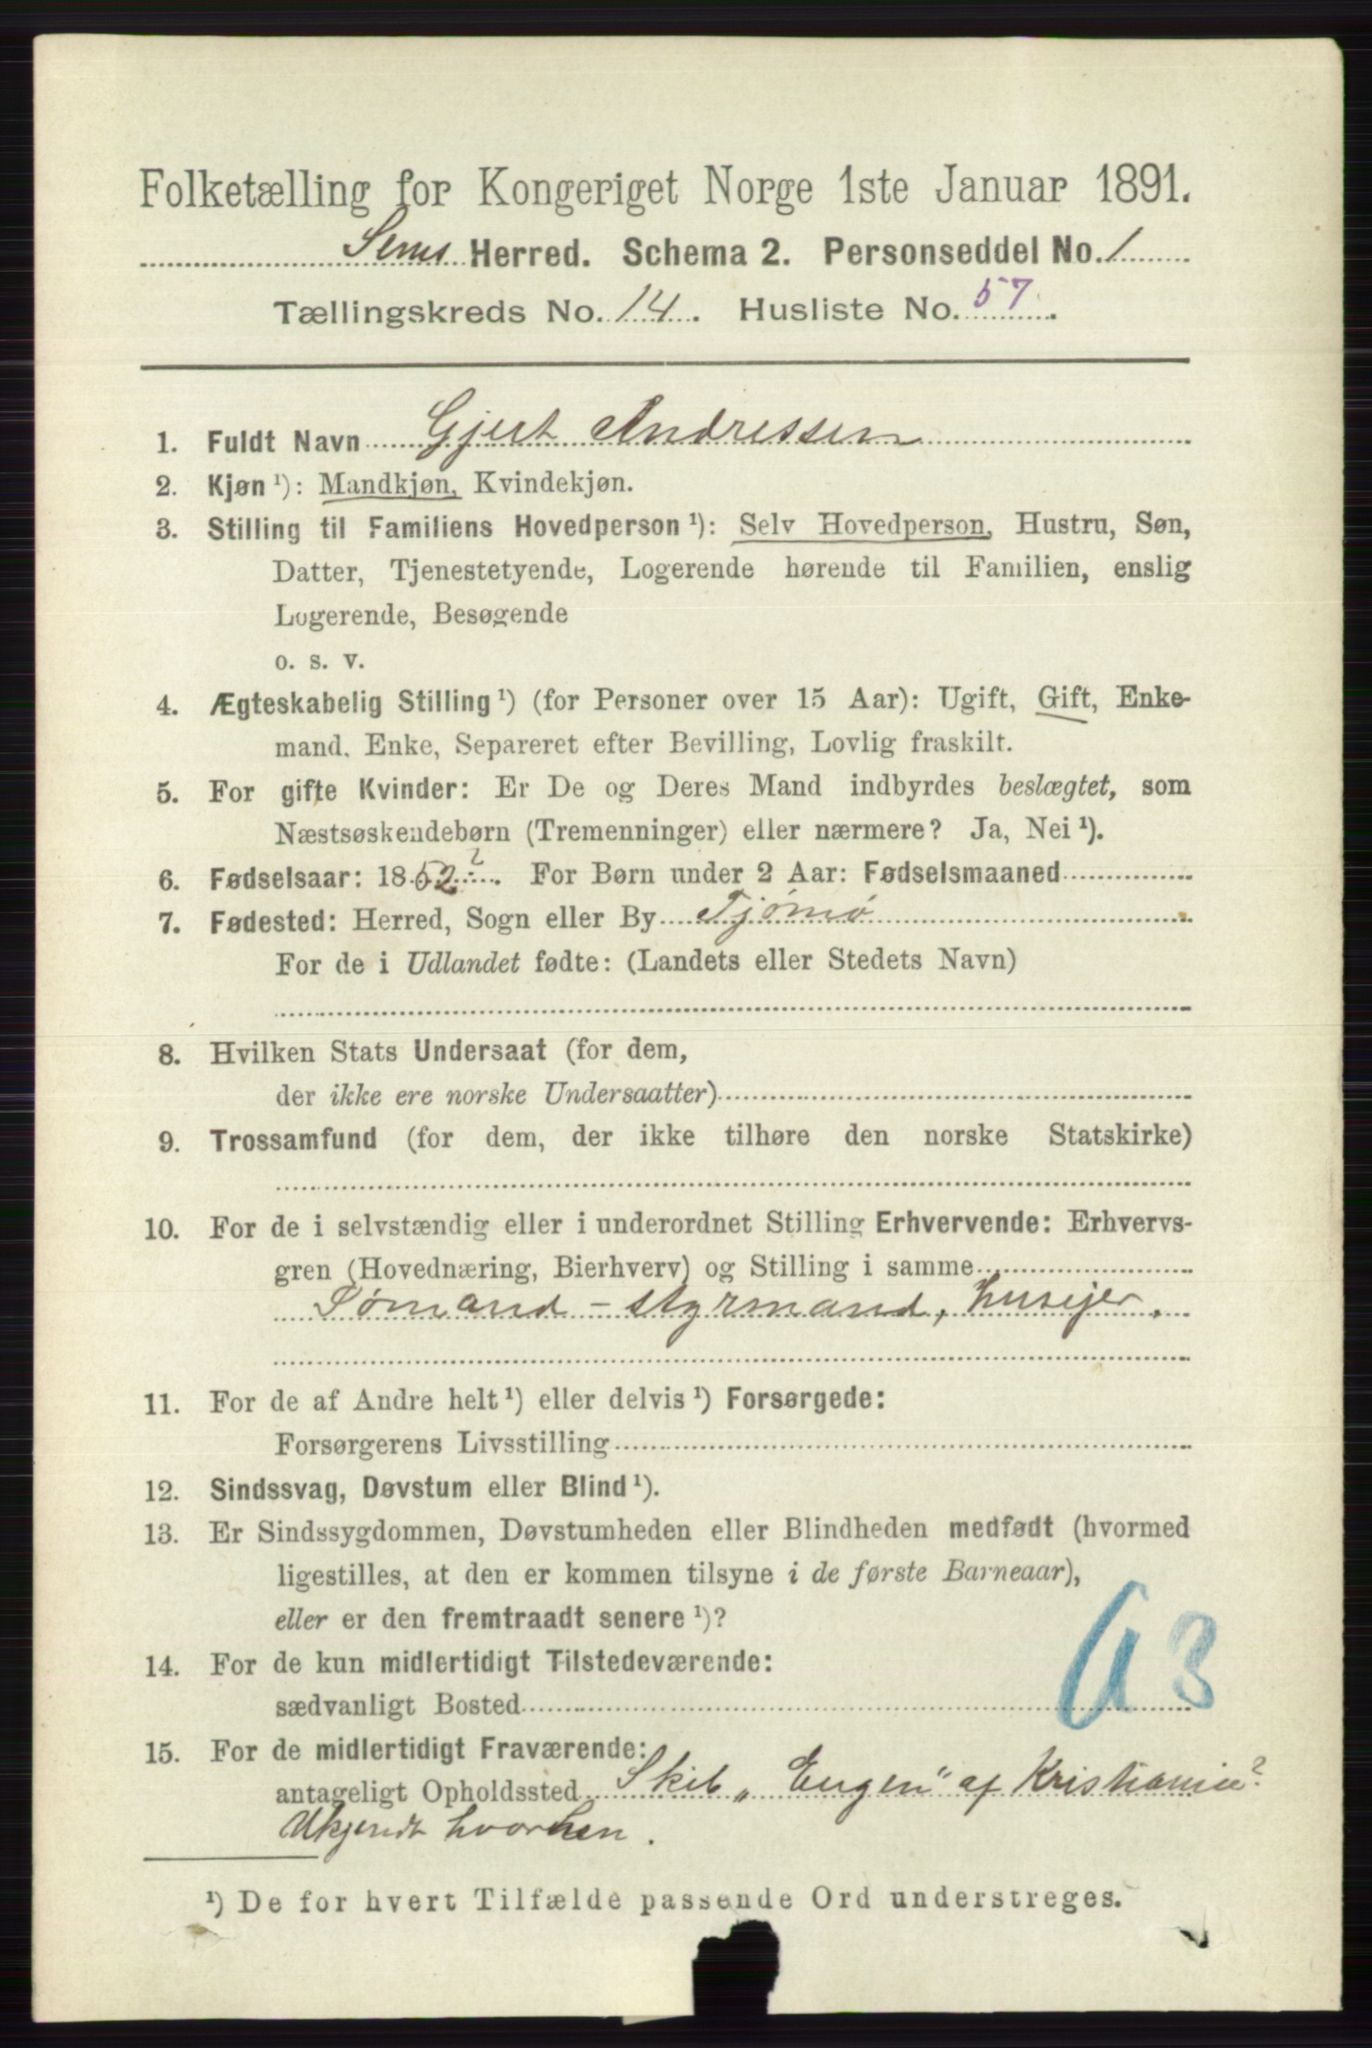 Folketælling for Kongeriget Norge 1ste Januar 1891.
Sems Herred. Schema 2. Personseddel No. 1
Tællingskreds No. 14. Husliste No. 57.
1. Fuldt Navn Gjert Andressen
2. Kjøn ¹): Mandkjøn, Kvindekjøn.
3. Stilling til Familiens Hovedperson ¹): Selv Hovedperson, Hustru, Søn,
Datter, Tjenestetyende, Logerende hørende til Familien, enslig
Logerende, Besøgende
o. s. v.
4. Ægteskabelig Stilling ¹) (for Personer over 15 Aar): Ugift, Gift, Enke-
mand, Enke, Separeret efter Bevilling, Lovlig fraskilt.
5. For gifte Kvinder: Er De og Deres Mand indbyrdes beslægtet, som
Næstsøskendebørn (Tremenninger) eller nærmere? Ja, Nei ¹).
6. Fødselsaar: 1852?. For Børn under 2 Aar: Fødselsmaaned
7. Fødested: Herred, Sogn eller By Tjømø
For de i Udlandet fødte: (Landets eller Stedets Navn)
8. Hvilken Stats Undersaat (for dem,
der ikke ere norske Undersaatter)
9. Trossamfund (for dem, der ikke tilhøre den norske Statskirke)
10. For de i selvstændig eller i underordnet Stilling Erhvervende: Erhvervs-
gren (Hovednæring, Bierhverv) og Stilling i samme
Sømand - styrmand, husejer.
11. For de af Andre helt ¹) eller delvis ¹) Forsørgede:
Forsørgerens Livsstilling
12. Sindssvag, Døvstum eller Blind ¹).
13. Er Sindssygdommen, Døvstumheden eller Blindheden medfødt (hvormed
ligestilles, at den er kommen tilsyne i de første Barneaar),
eller er den fremtraadt senere ¹)?
14. For de kun midlertidigt Tilstedeværende:
sædvanligt Bosted
15. For de midlertidigt Fraværende:
antageligt Opholdssted Skib „Eugen“ af Kristiania?
Ukjendt hvorhen.
¹) De for hvert Tilfælde passende Ord understreges.